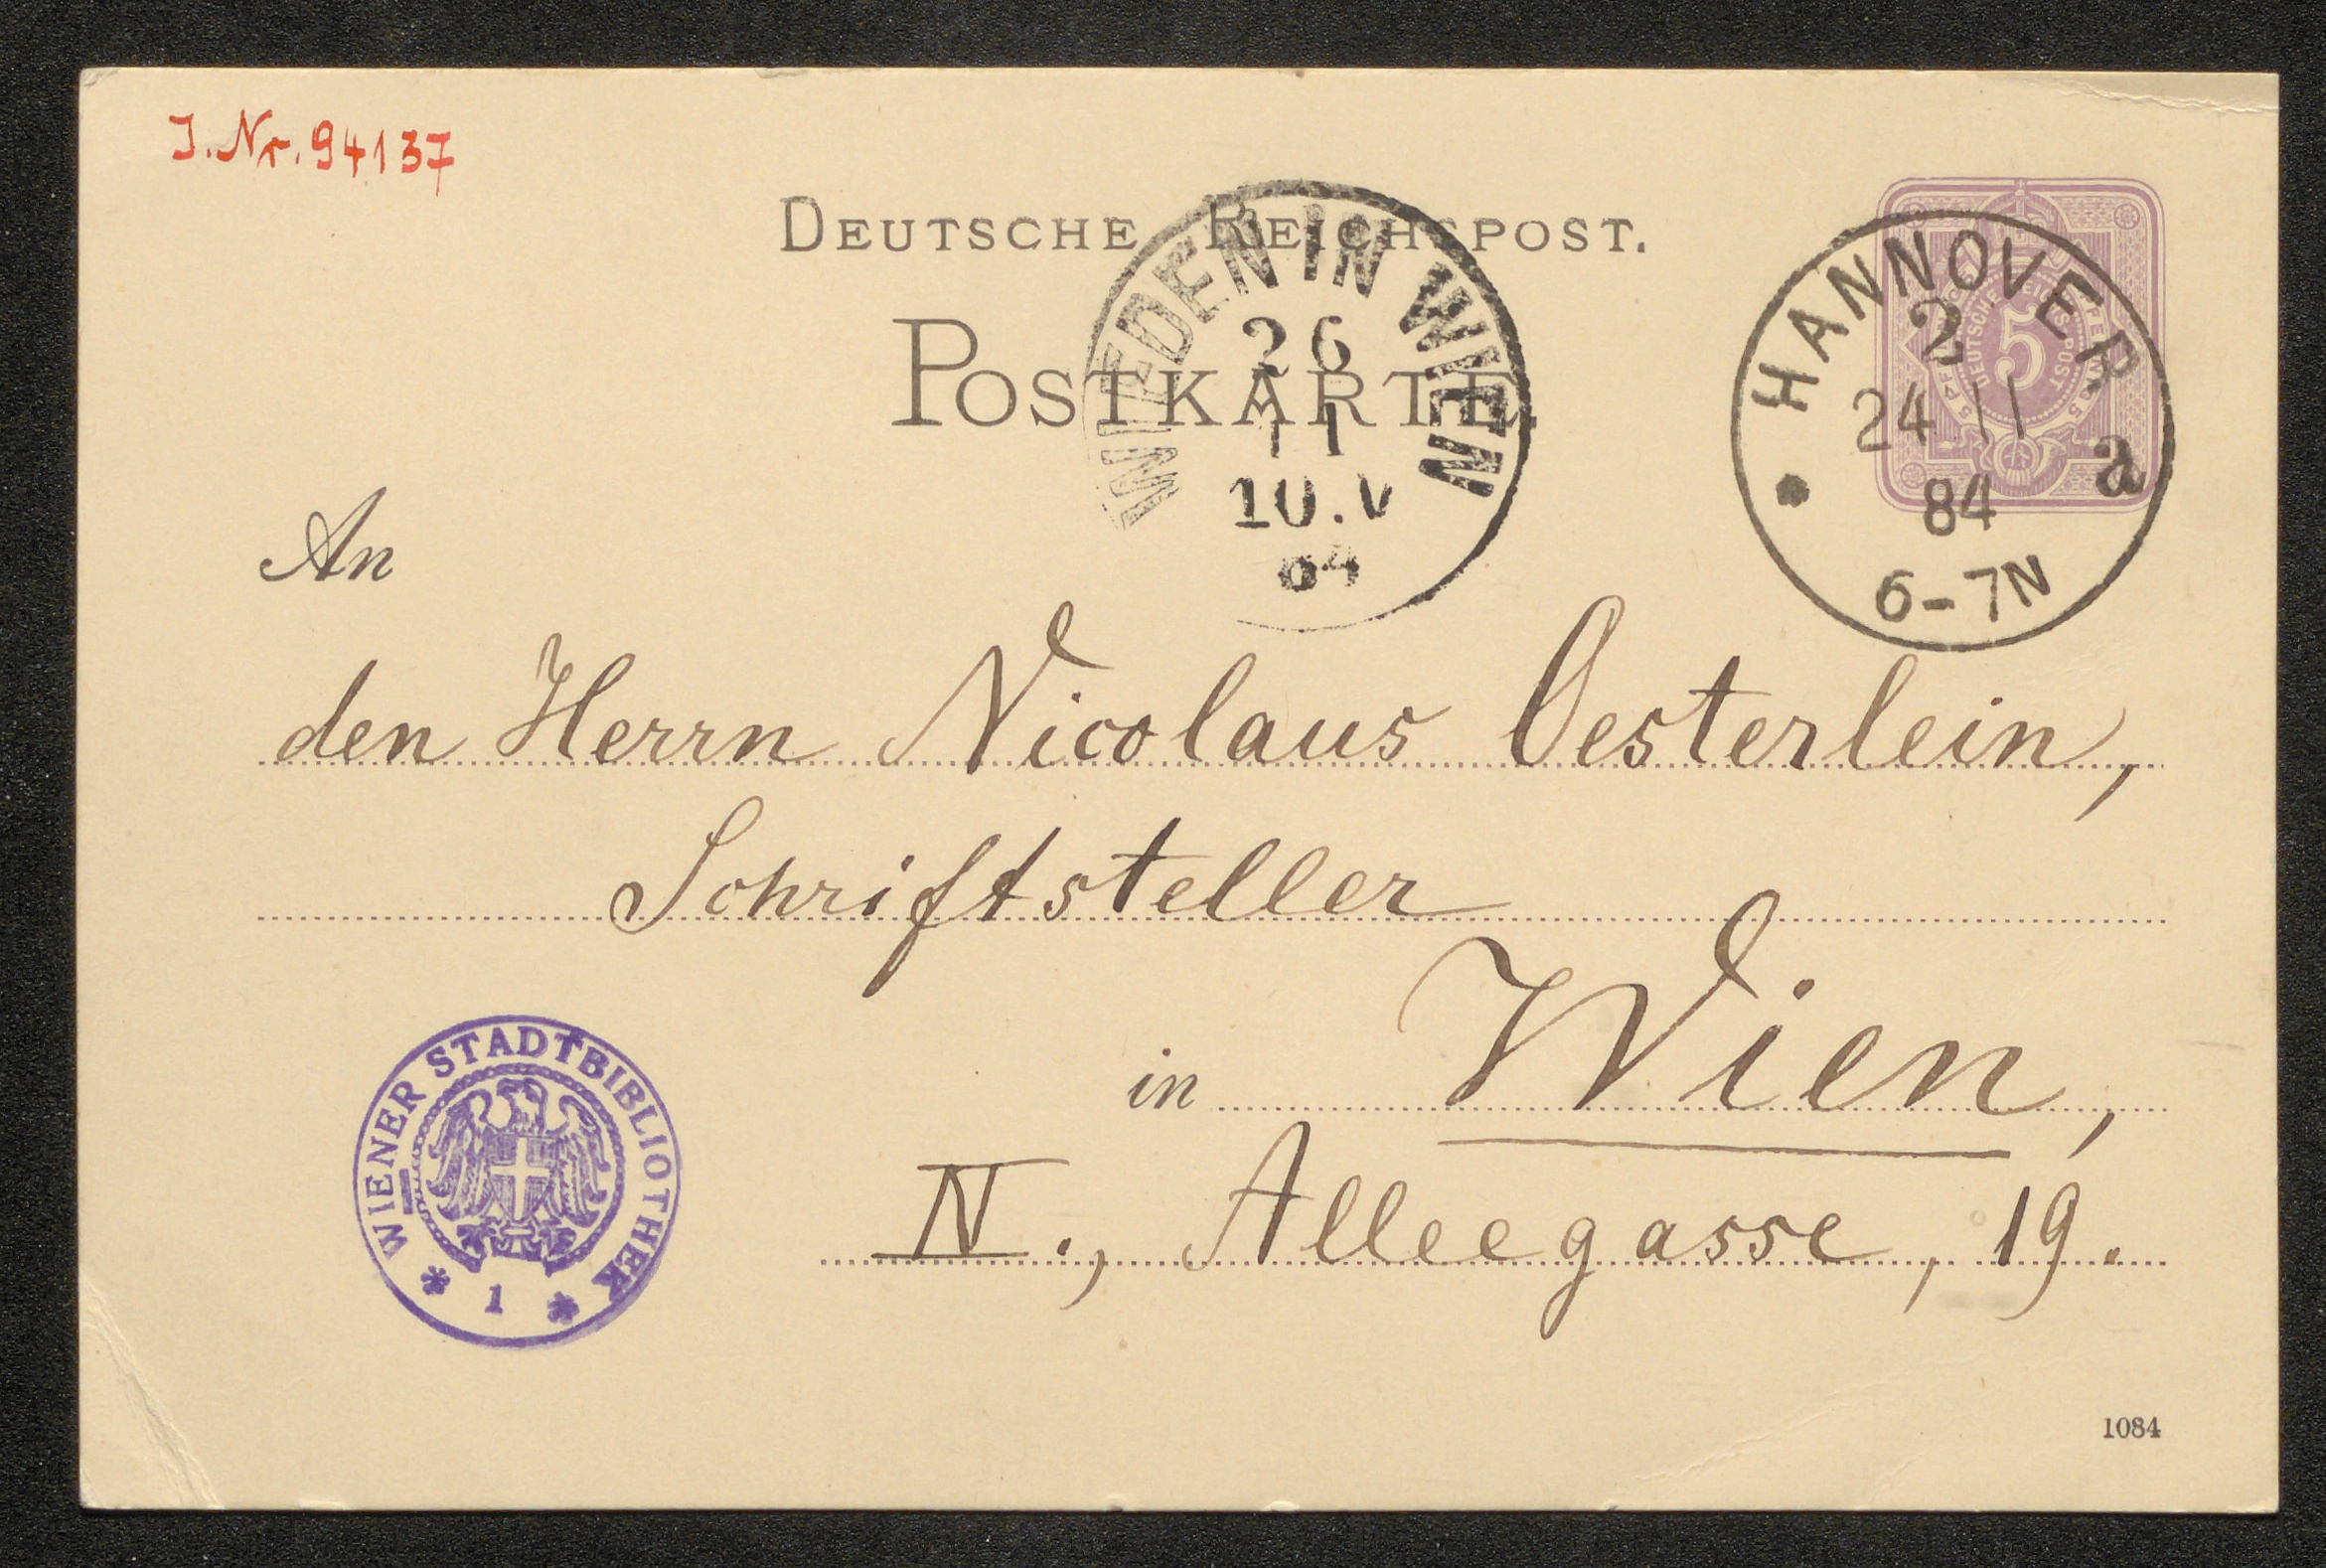 J.Nr.94137
DEUTSCHE REICHSPOST.
POSTKARTE.
WIEDEN IN WIEN
26
11
10.V
84
HANNOVER
2
24 11
84
a
6-7N
5
An
den Herrn Nicolaus Oesterlein,
Schriftsteller
in Wien,
IV., Alleegasse, 19.
WIENER STADTBIBLIOTHEK
* 1 *
1084